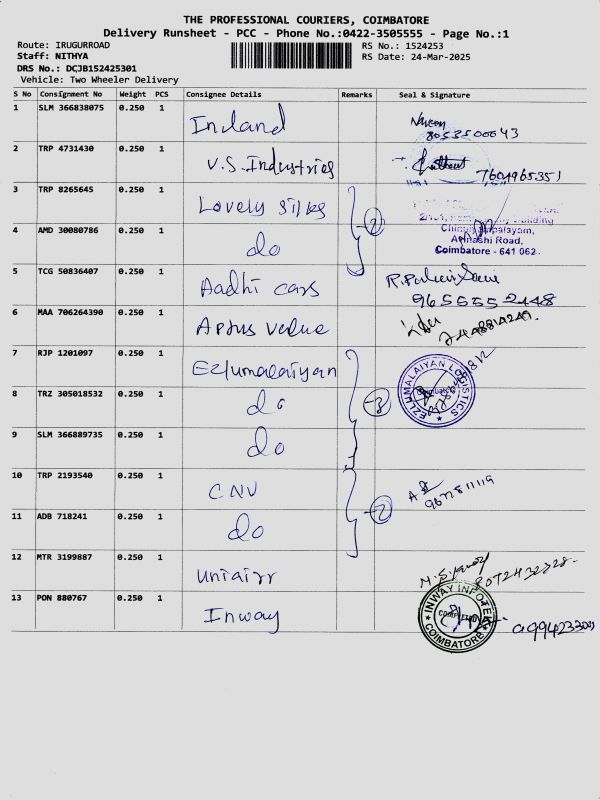 THE PROFESSIONAL COURIERS, COIMBATORE
Delivery Runsheet - PCC - Phone No.:0422-3505555 - Page No.:1
Route: IRUGURROAD
RS No.: 1524253
Staff: NITHYA
RS Date: 24-Mar-2025
DRS No.: DCJB152425301
Vehicle: Two Wheeler Delivery
S No Consignment No Weight PCS Consignee Details Remarks Seal & Signature
1 SLM 366838075 0.250 1 Inland
8053500043
2 TRP 4731430 0.250 1 V.S. Industries
7604965351
3 TRP 8265645 0.250 1 Lovely silks
2
Building
4 AMD 30080786 0.250 1 do
Avinashi Road,
Coimbatore - 641 062.
5 TCG 50836407 0.250 1 Aadhi cars
9655552448
6 MAA 706264390 0.250 1 Aptus value
7 RJP 1201097 0.250 1 Ezlumalaiyan
EZLUMALAIYAN LOGISTICS
8 TRZ 305018532 0.250 1 do
3
9 SLM 366889735 0.250 1 do
10 TRP 2193540 0.250 1 CNV
11 ADB 718241 0.250 1 do
2
12 MTR 3199887 0.250 1 Uniairr
8072432328
13 PON 880767 0.250 1 Inway
INWAY INFOTEK
COIMBATORE